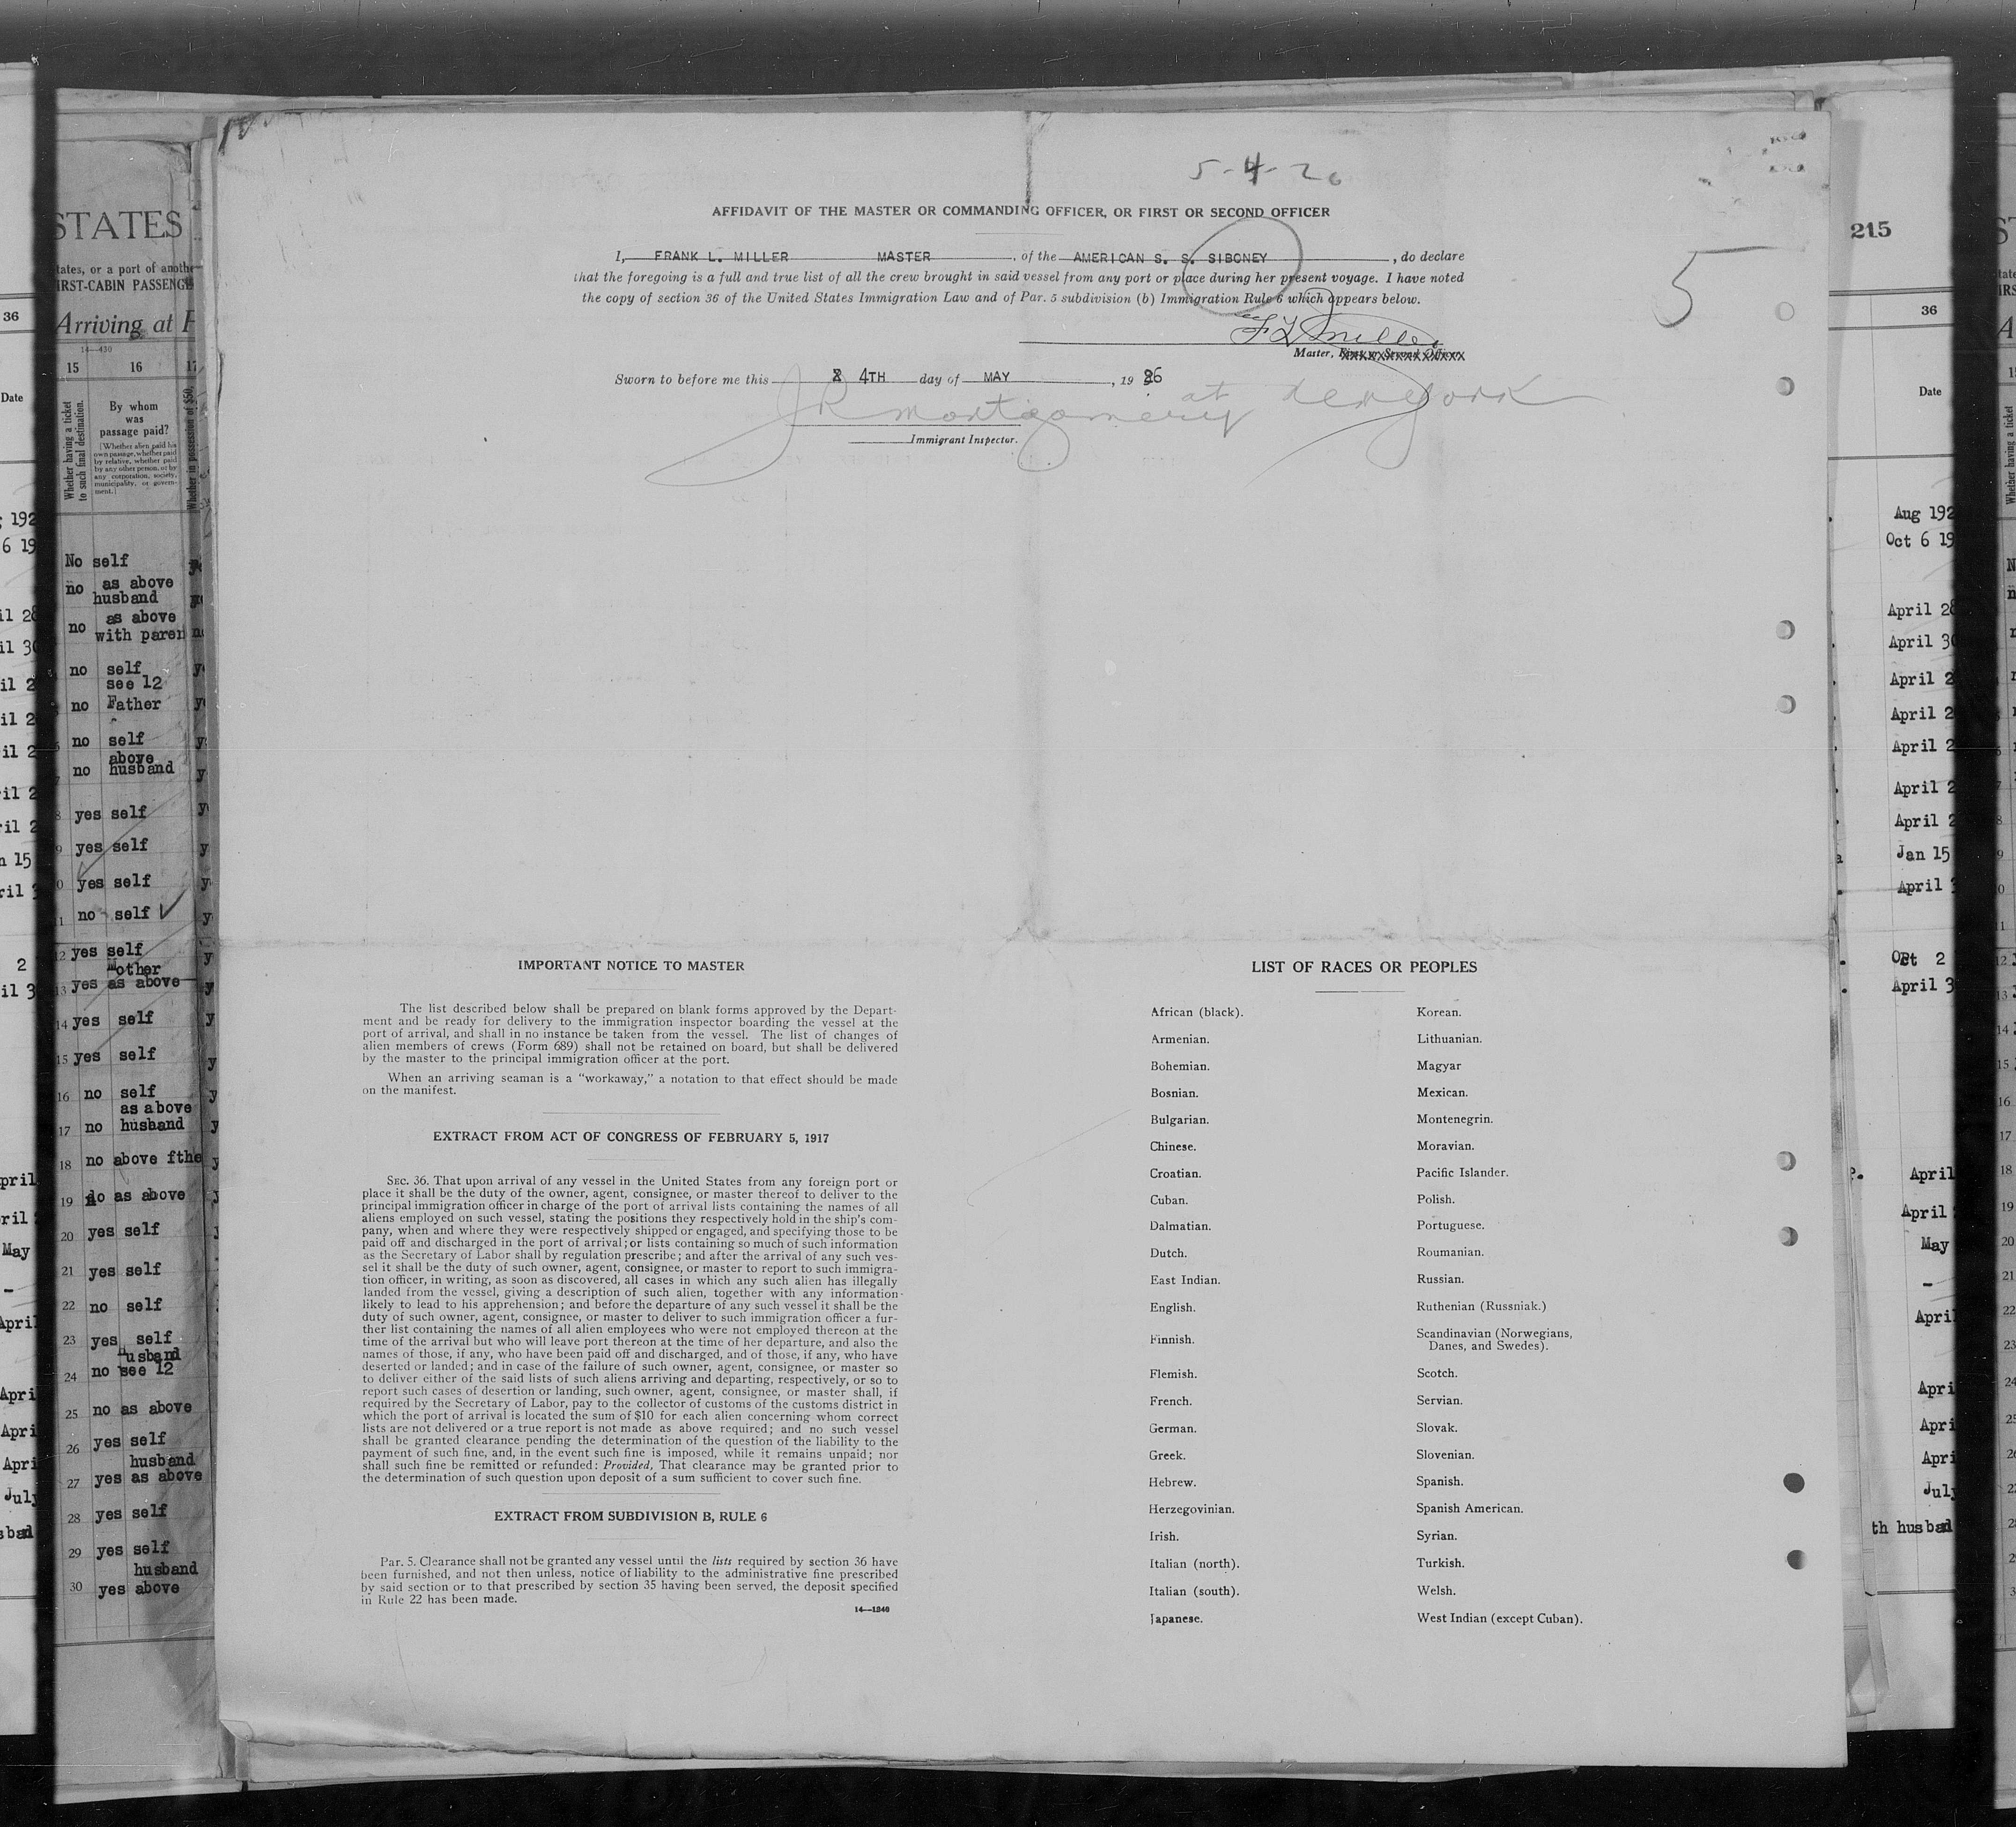 5-4-26
AFFIDAVIT OF THE MASTER OR COMMANDING OFFICER, OR FIRST OR SECOND OFFICER
I, FRANK L. MILLER MASTER, of the AMERICAN S. S. SIBONEY, do declare
that the foregoing is a full and true list of all the crew brought in said vessel from any port or place during her present voyage. I have noted
the copy of section 36 of the United States Immigration Law and of Par. 5 subdivision (b) Immigration Rule 6 which appears below.
5
F L Miller
Master, First or Second Officer.
Sworn to before me this 4TH day of MAY, 1926
J R Montgomery at New York
Immigrant Inspector.
IMPORTANT NOTICE TO MASTER
The list described below shall be prepared on blank forms approved by the Depart-
ment and be ready for delivery to the immigration inspector boarding the vessel at the
port of arrival, and shall in no instance be taken from the vessel. The list of changes of
alien members of crews (Form 689) shall not be retained on board, but shall be delivered
by the master to the principal immigration officer at the port.
When an arriving seaman is a "workaway," a notation to that effect should be made
on the manifest.
EXTRACT FROM ACT OF CONGRESS OF FEBRUARY 5, 1917
SEC. 36. That upon arrival of any vessel in the United States from any foreign port or
place it shall be the duty of the owner, agent, consignee, or master thereof to deliver to the
principal immigration officer in charge of the port of arrival lists containing the names of all
aliens employed on such vessel, stating the positions they respectively hold in the ship's com-
pany, when and where they were respectively shipped or engaged, and specifying those to be
paid off and discharged in the port of arrival; or lists containing so much of such information
as the Secretary of Labor shall by regulation prescribe; and after the arrival of any such ves-
sel it shall be the duty of such owner, agent, consignee, or master to report to such immigra-
tion officer, in writing, as soon as discovered, all cases in which any such alien has illegally
landed from the vessel, giving a description of such alien, together with any information
likely to lead to his apprehension; and before the departure of any such vessel it shall be the
duty of such owner, agent, consignee, or master to deliver to such immigration officer a fur-
ther list containing the names of all alien employees who were not employed thereon at the
time of the arrival but who will leave port thereon at the time of her departure, and also the
names of those, if any, who have been paid off and discharged, and of those, if any, who have
deserted or landed; and in case of the failure of such owner, agent, consignee, or master so
to deliver either of the said lists of such aliens arriving and departing, respectively, or so to
report such cases of desertion or landing, such owner, agent, consignee, or master shall, if
required by the Secretary of Labor, pay to the collector of customs of the customs district in
which the port of arrival is located the sum of $10 for each alien concerning whom correct
lists are not delivered or a true report is not made as above required; and no such vessel
shall be granted clearance pending the determination of the question of the liability to the
payment of such fine, and, in the event such fine is imposed, while it remains unpaid; nor
shall such fine be remitted or refunded: Provided, That clearance may be granted prior to
the determination of such question upon deposit of a sum sufficient to cover such fine.
EXTRACT FROM SUBDIVISION B, RULE 6
Par. 5. Clearance shall not be granted any vessel until the lists required by section 36 have
been furnished, and not then unless, notice of liability to the administrative fine prescribed
by said section or to that prescribed by section 35 having been served, the deposit specified
in Rule 22 has been made.
14—1240
LIST OF RACES OR PEOPLES
African (black).
Armenian.
Bohemian.
Bosnian.
Bulgarian.
Chinese.
Croatian.
Cuban.
Dalmatian.
Dutch.
East Indian.
English.
Finnish.
Flemish.
French.
German.
Greek.
Hebrew.
Herzegovinian.
Irish.
Italian (north).
Italian (south).
Japanese.
Korean.
Lithuanian.
Magyar
Mexican.
Montenegrin.
Moravian.
Pacific Islander.
Polish.
Portuguese.
Roumanian.
Russian.
Ruthenian (Russniak.)
Scandinavian (Norwegians,
Danes, and Swedes).
Scotch.
Servian.
Slovak.
Slovenian.
Spanish.
Spanish American.
Syrian.
Turkish.
Welsh.
West Indian (except Cuban).
STATES
Arriving at
14—430
15 16
Whether having a ticket
to such final destination.
By whom
was
passage paid?
(Whether alien paid his
own passage, whether paid
by relative, whether paid
by any other person, or by
any corporation, society,
municipality, or govern-
ment.)
Whether in possession of $50,
No self
no as above
husband
no as above
with paren
no self
see 12
no Father
no self
above
no husband
8 yes self
9 yes self
yes self
no self
12 yes self
Mother
13 yes as above
14 yes self
15 yes self
16 no self
as above
17 no husband
18 no above fthe
19 do as above
20 yes self
21 yes self
22 no self
23 yes self
Husband
24 no see 12
25 no as above
26 yes self
husband
27 yes as above
28 yes self
29 yes self
husband
30 yes above
215
36
Date
Aug 192
Oct 6 19
April 28
April 30
April 2
April 2
April 2
April 2
April 2
Jan 15
April 3
Oct 2
April 3
April
April
May
April
Apri
Apri
Apri
July
th husband